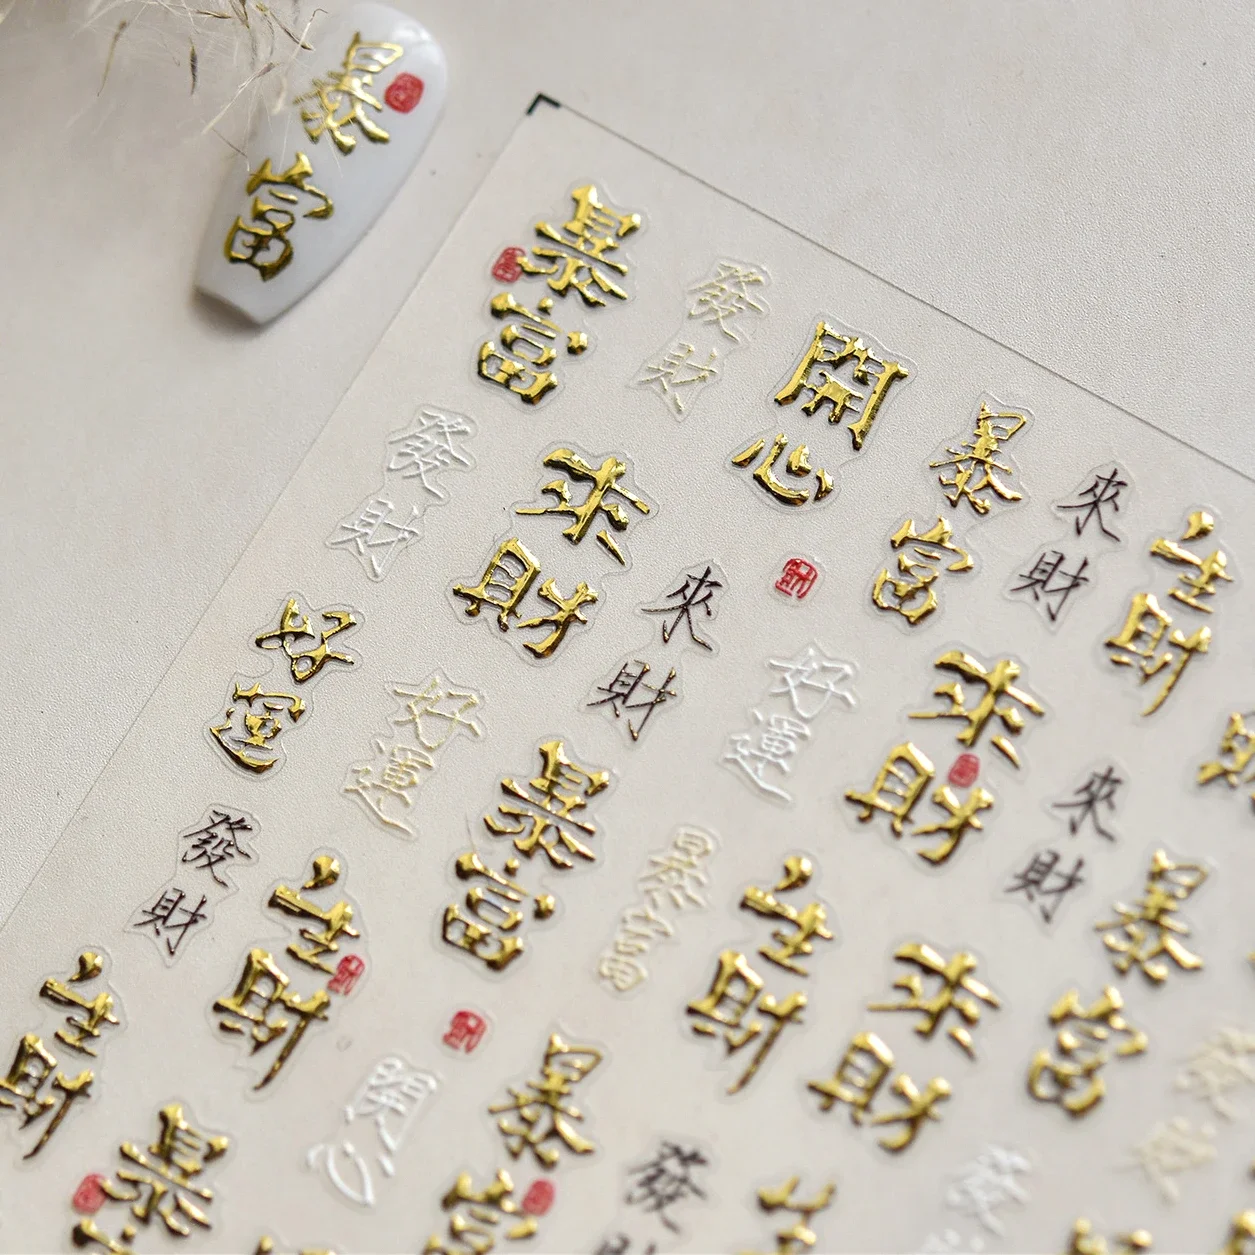 暴富
暴富
發財
開心
發財
來財
暴富
來財
生財
來財
好運
好運
好運
來財
暴富
來財
發財
生財
暴富
暴富
生財
來財
暴富
生財
開心
暴富
發財
暴富